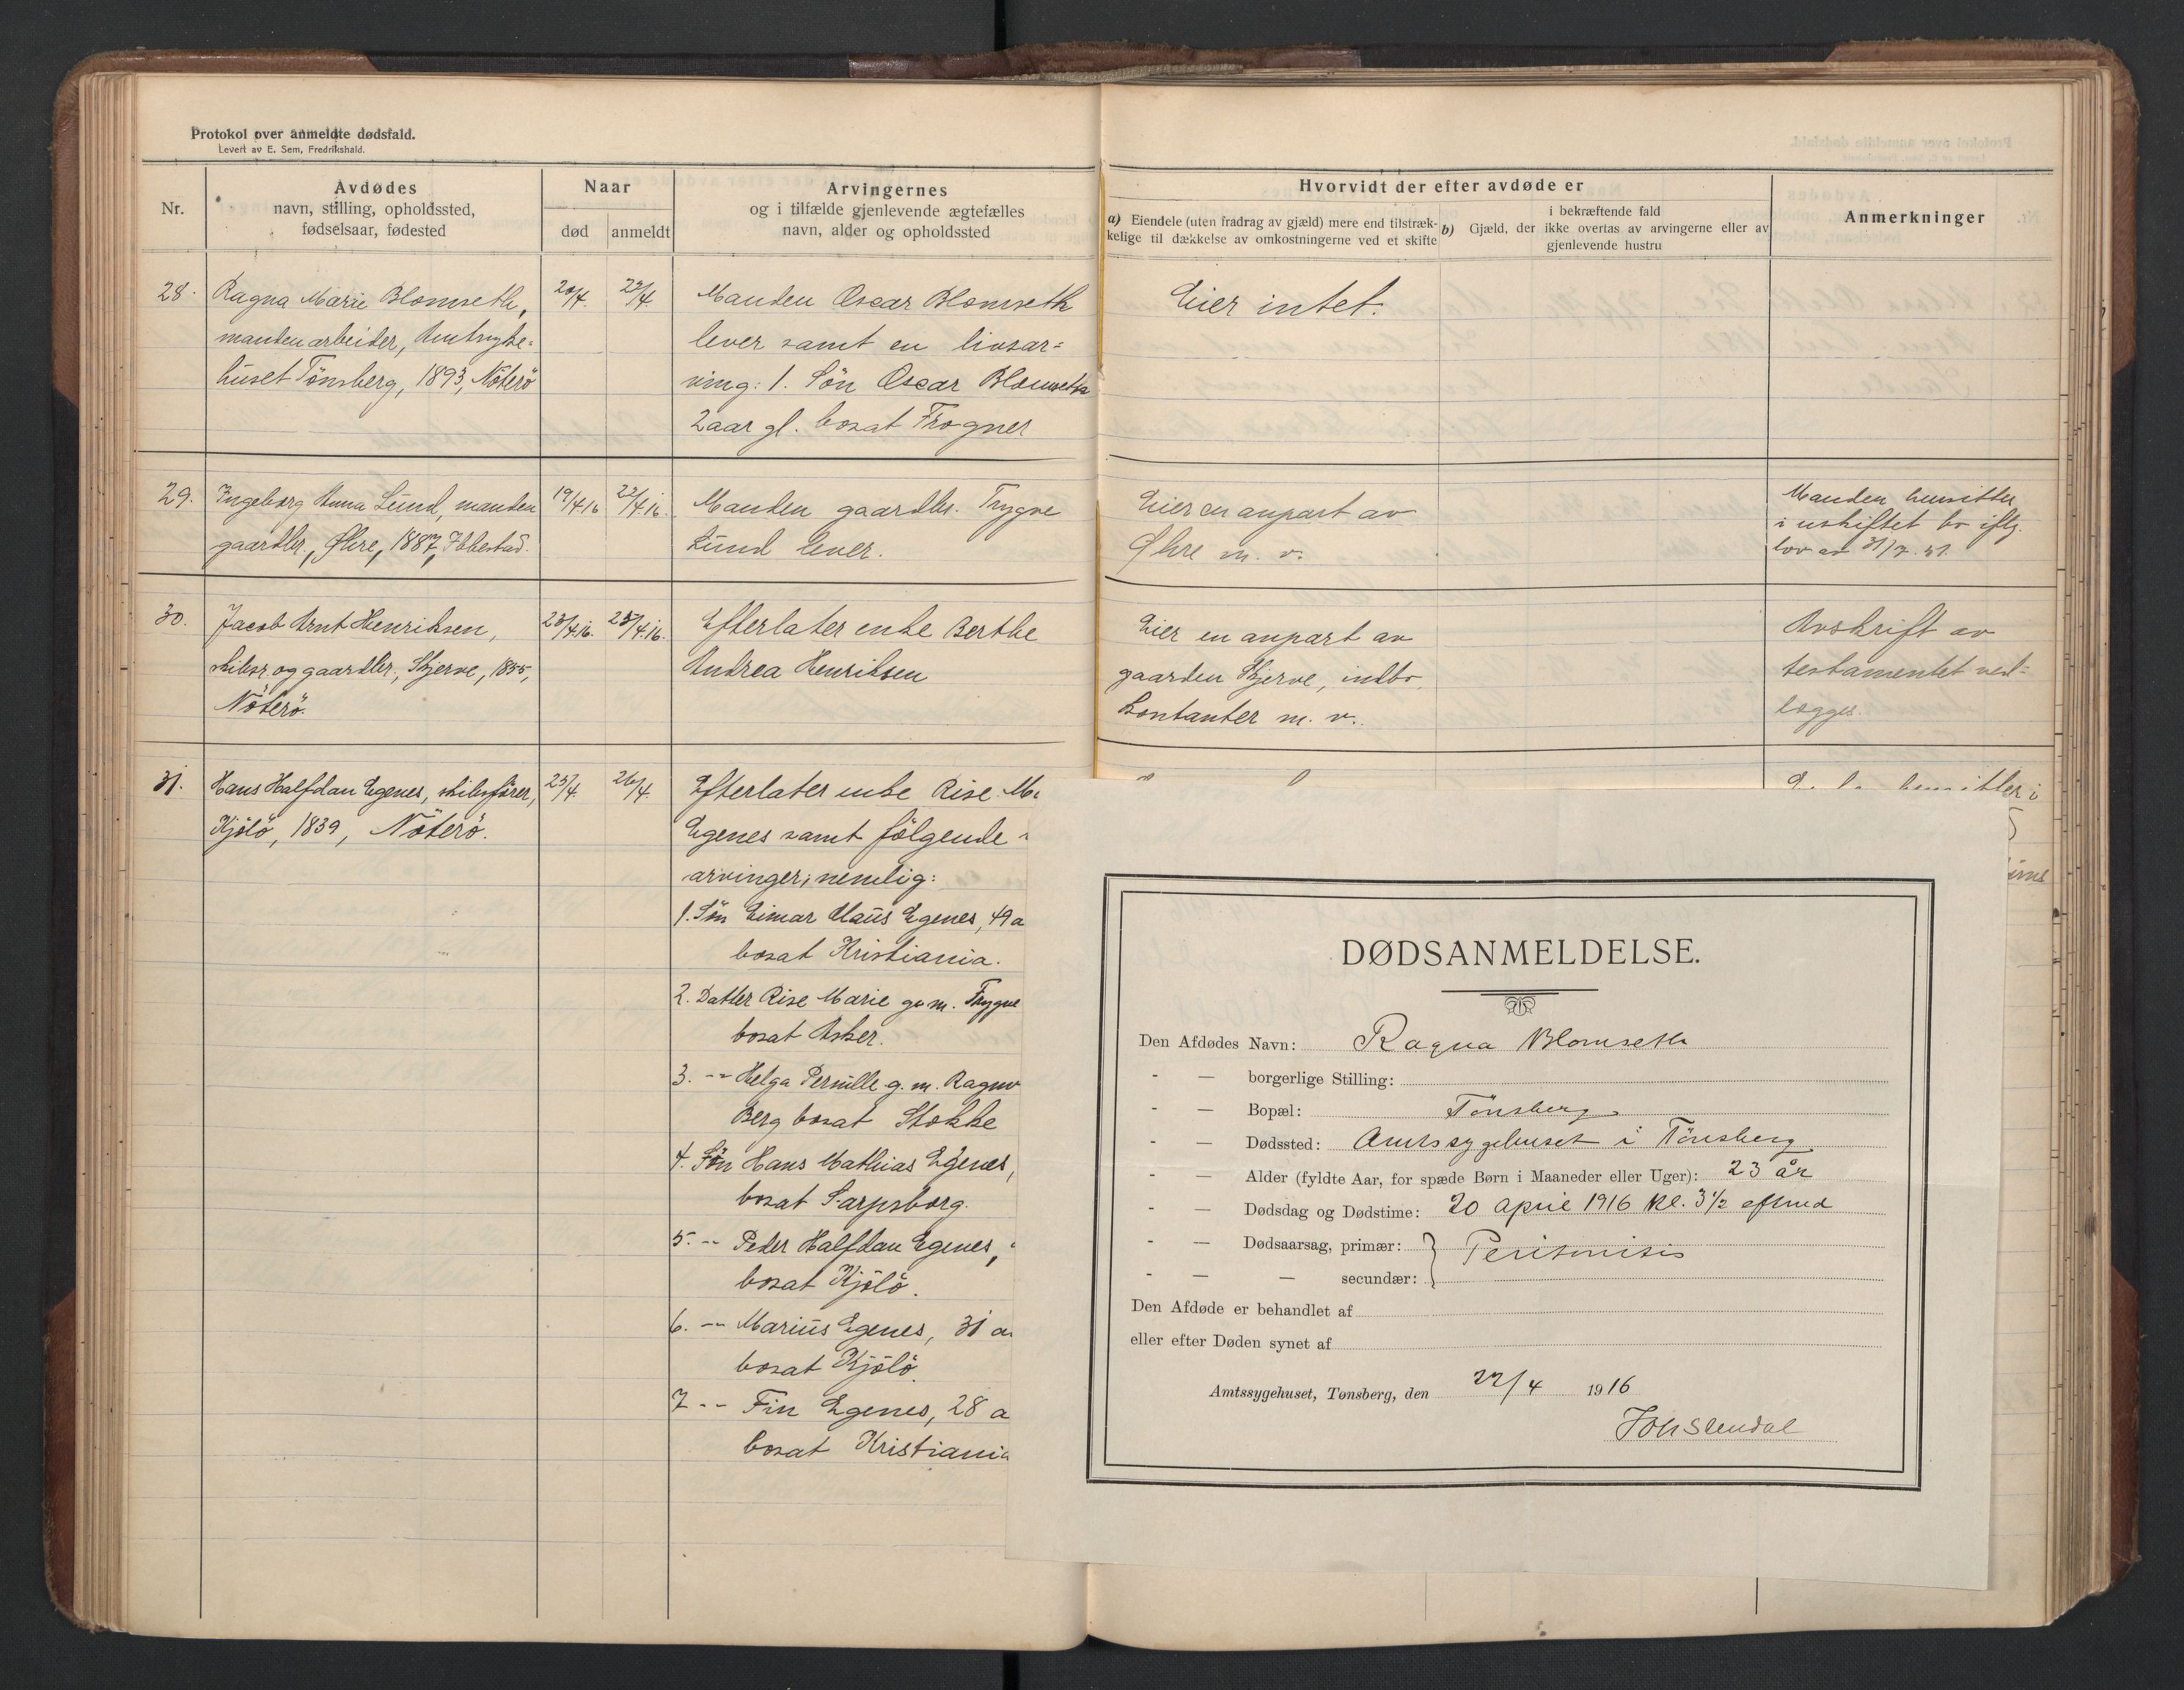 Protokol over anmeldte dødsfald.
Levert av E. Sem, Fredrikshald.
Nr.
Avdødes
navn, stilling, opholdssted,
fødselsaar, fødested
Naar
død
anmeldt
Arvingernes
og i tilfælde gjenlevende ægtefælles
navn, alder og opholdssted
Hvorvidt der efter avdøde er
a) Eiendele (uten fradrag av gjæld) mere end tilstræk-
kelige til dækkelse av omkostningerne ved et skifte
i bekræftende fald
b) Gjæld, der ikke overtas av arvingerne eller av
gjenlevende hustru
Anmerkninger
28.
Ragna Marie Blomseth,
manden arbeider, Amtsyke-
huset Tönsberg, 1893, Nöterö
20/4.
22/4.
Manden Oscar Blomseth
lever samt en livsar-
ving: 1. Sön Oscar Blomseth
2 aar gl. bosat Frogner
Eier intet.
29.
Ingeborg Anna Lund, manden
gaardbr., Øhre, 1887, Ibbestad.
19/4.16
22/4.16.
Manden gaardbr. Trygve
Lund lever.
Eier en anpart av
Øhre m. v.
Manden hensitter
i uskiftet bo iflg.
lov av 31/7. 51.
30.
Jacob Arnt Henriksen,
skibsr. og gaardbr., Skjerve, 1855,
Nöterö.
23/4.16.
25/4.16.
Efterlater enke Berthe
Andrea Henriksen
Eier en anpart av
gaarden Skjerve, indbo,
kontanter m. v.
Avskrift av
testamentet ved-
lægges.
31.
Hans Halfdan Egenes, skibsfører,
Kjölö, 1839, Nöterö.
25/4.
26/4.
Efterlater enke Rise
Egenes samt fölgende
arvinger, nemlig:
1. Sön Eimar Claus Egenes, 49 a
bosat Kristiania.
2. Datter Rise Marie g. m. Trygve
bosat Asker.
3. -- Helga Pernille g. m. Ragnv
Berg bosat Stokke
4. Sön Hans Mathias Egenes,
bosat Sarpsborg.
5. -- Peder Halfdan Egenes,
bosat Kjölö.
6. -- Marius Egenes, 31 a
bosat Kjölö.
7 -- Fin Egenes, 28 a
bosat Kristiania
hensitter i
DØDSANMELDELSE.
Den Afdødes Navn: Ragna Blomseth
- — borgerlige Stilling:
- — Bopæl: Tönsberg
- — Dødssted: Amtssygehuset i Tönsberg
- — Alder (fyldte Aar, for spæde Børn i Maaneder eller Uger): 23 år
- — Dødsdag og Dødstime: 20 april 1916 kl. 3 1/2 eftmd
- — Dødsaarsag, primær: } Peritonitis
- — — secundær:
Den Afdøde er behandlet af
eller efter Døden synet af
Amtssygehuset, Tønsberg, den 22/4 1916